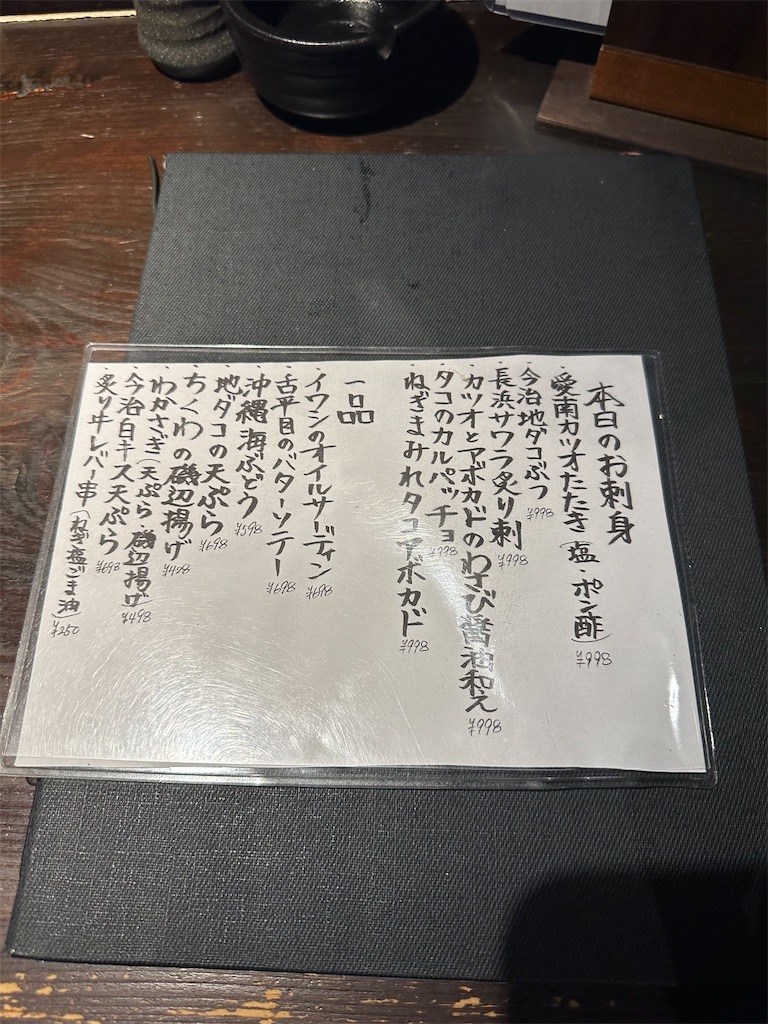 本日のお刺身
愛南カツオたたき(塩・ポン酢) ¥998
・今治地ダコぶつ ¥998
・長浜サワラ炙り刺 ¥998
・カツオとアボカドのわさび醤油和え ¥998
・タコのカルパッチョ ¥998
・ねぎまみれタコアボカド ¥998
一品
・イワシのオイルサーディン ¥698
・舌平目のバターソテー ¥698
・沖縄海ぶどう ¥598
・地ダコの天ぷら ¥698
・ちくわの磯辺揚げ ¥428
・わかさぎ(天ぷら・磯辺揚げ) ¥498
・今治白キス天ぷら ¥698
・炙り牛レバー串(ねぎ塩ごま油) ¥250